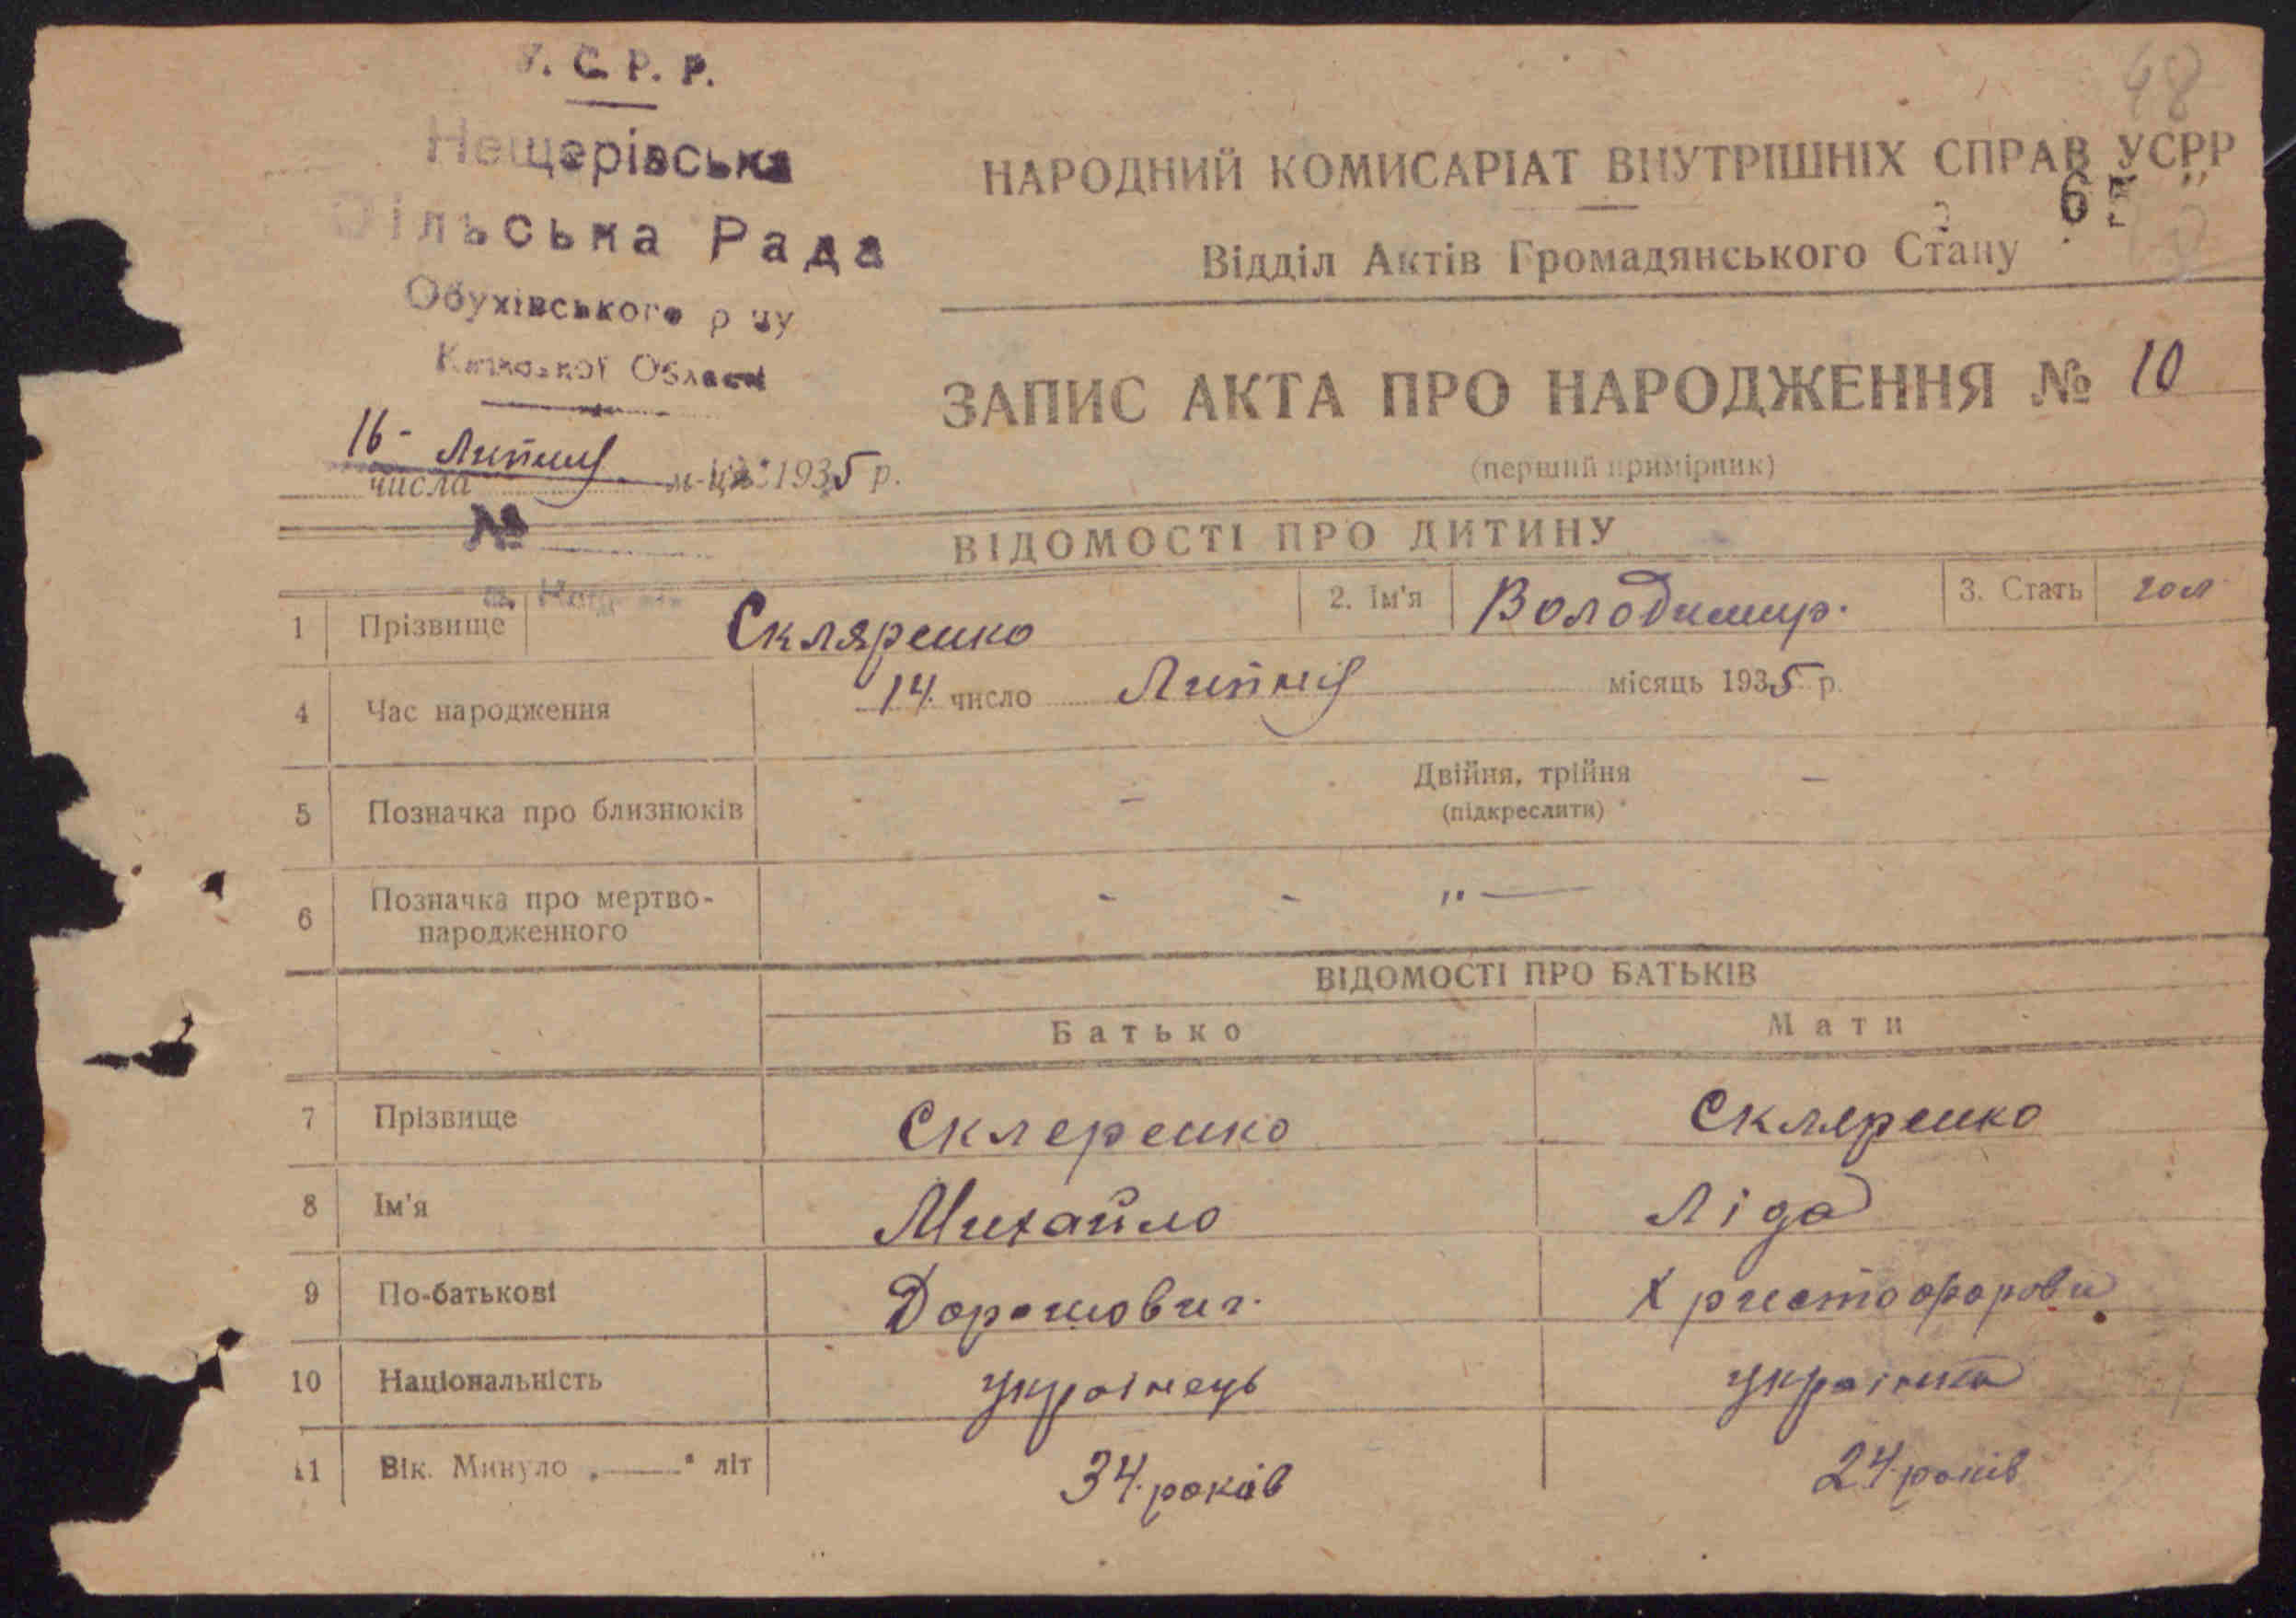 У. С. Р. Р.
Нещерівська
Сільська Рада
Обухівського р ну
Київської Області
16 - Липня м-ця 1935 р.
числа
№
48
НАРОДНИЙ КОМИСАРІАТ ВНУТРІШНІХ СПРАВ УСРР
6
Відділ Актів Громадянського Стану
ЗАПИС АКТА ПРО НАРОДЖЕННЯ № 10
(перший примірник)
ВІДОМОСТІ ПРО ДИТИНУ
1 Прізвище Скляренко 2. Ім'я Володимир. 3. Стать чол
4 Час народження 14 число Липня місяць 1935 р.
5 Позначка про близнюків - Двійня, трійня -
(підкреслити)
6 Позначка про мертво-
народженного - - " —
ВІДОМОСТІ ПРО БАТЬКІВ
Батько Мати
7 Прізвище Склеренко Скляренко
8 Ім'я Михайло Ліда
9 По-батькові Дорошович. Христофорови
10 Національність українець українка
11 Вік. Минуло „——" літ 34 років 24 років